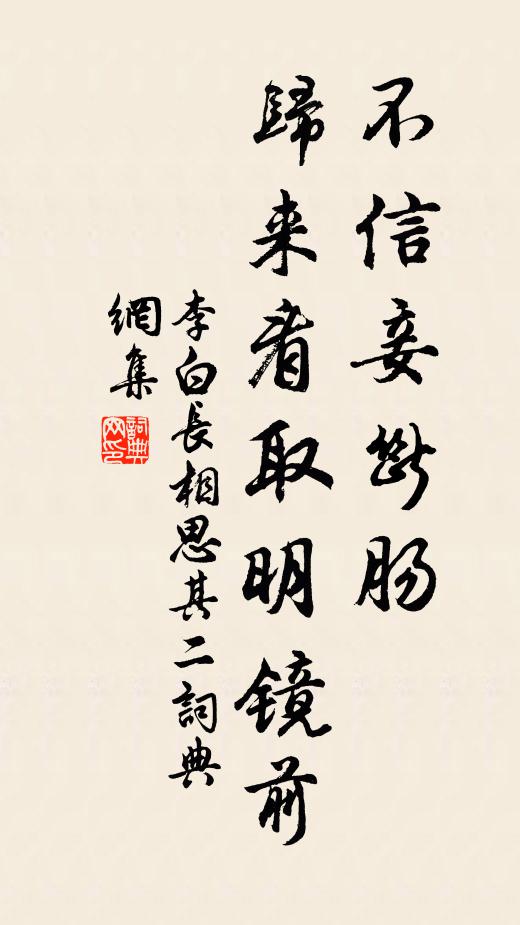 不信妾斷肠
歸来看取明镜前
李白長相思其二詞典
網集
詞典
网印